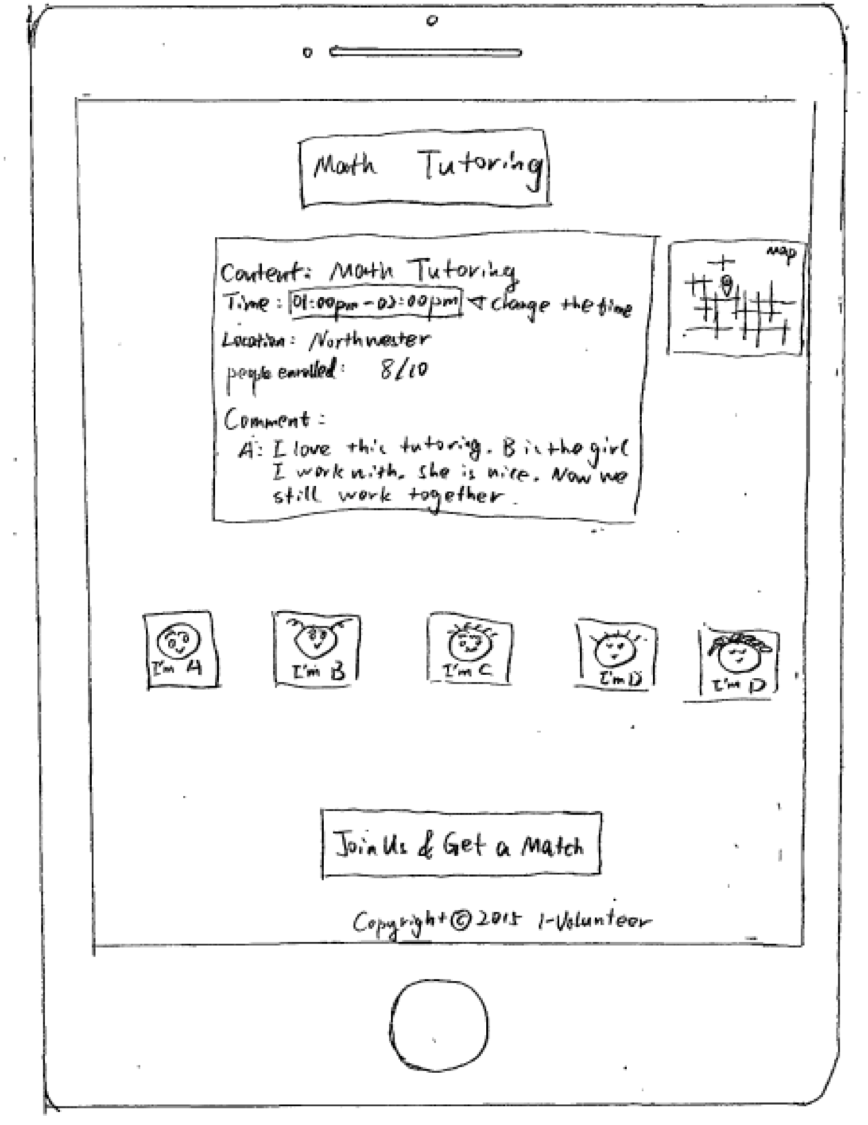 Math Tutoring
Content: Math Tutoring
Time: 01:00pm-03:00pm change the time
Location: Northwester
people enrolled: 8/10
Comment:
A: I love this tutoring. B is the girl
I work with. she is nice. Now we
still work together.
map
I'm A
I'm B
I'm C
I'm D
I'm D
Join Us & Get a Match
Copyright © 2015 1-Volunteer